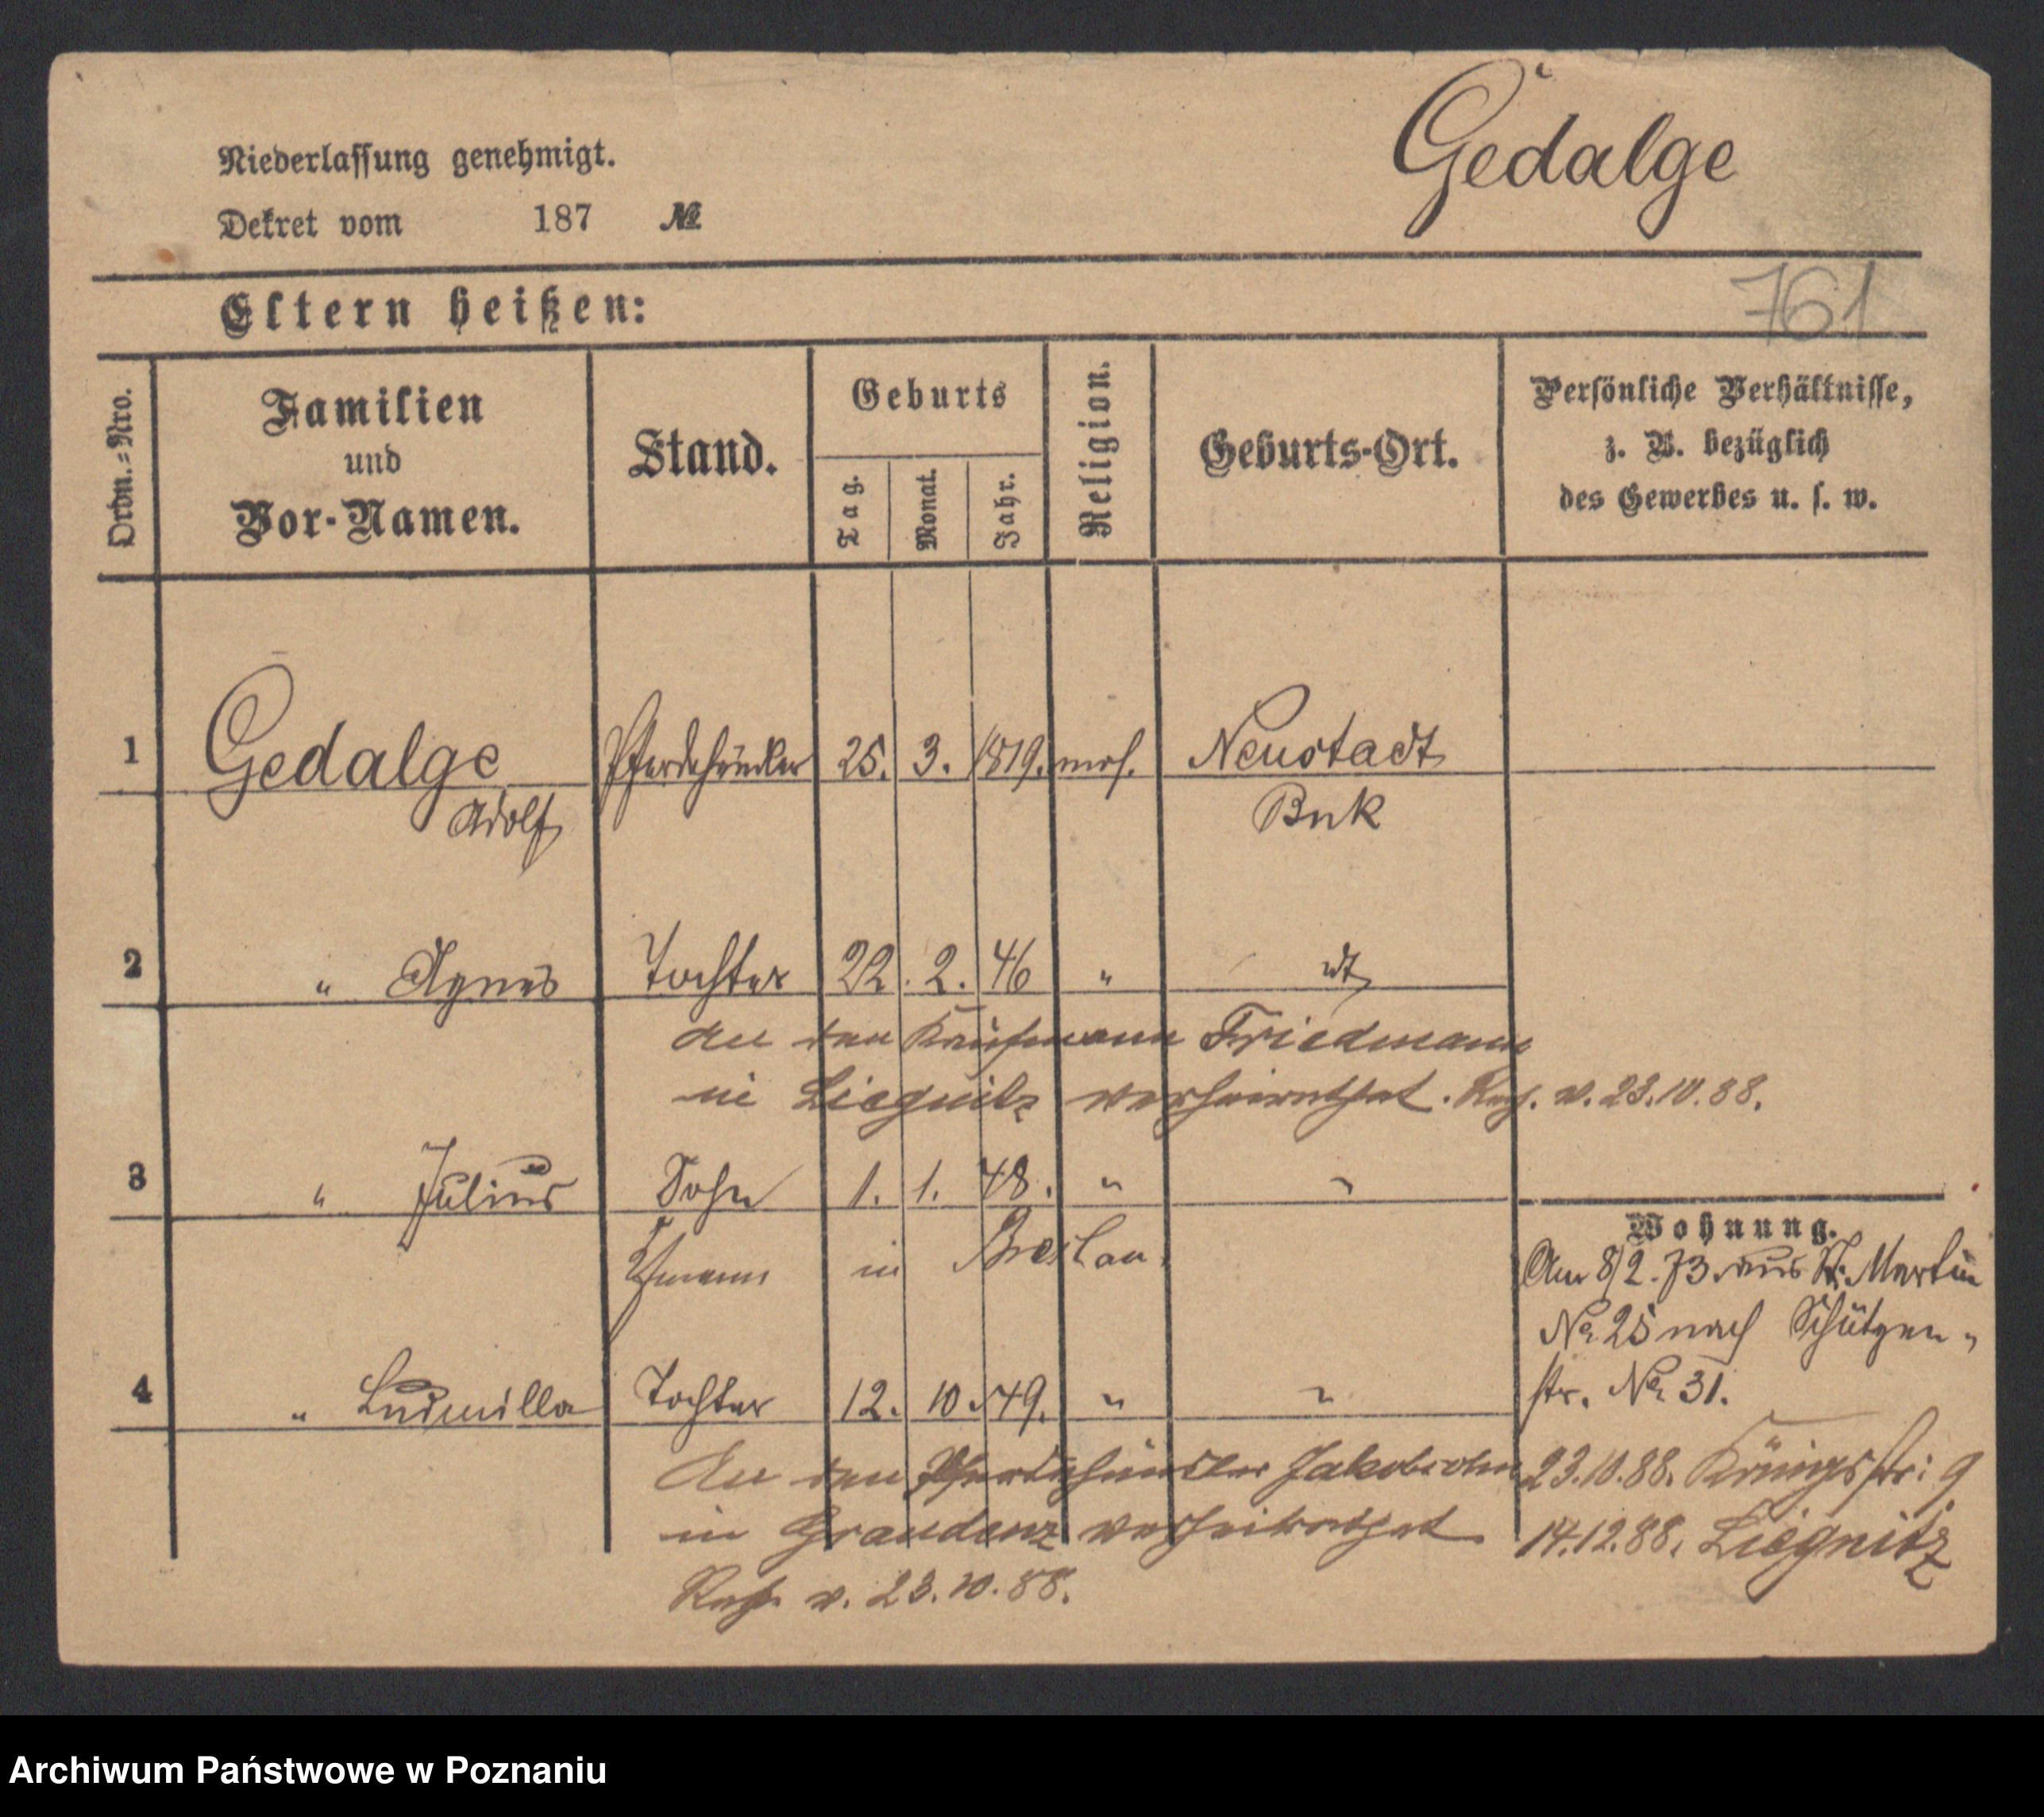 Gedalge
Niederlassung genehmigt.
Dekret vom 187 №
761
Eltern heißen:
Ordn.-Nro.
Familien
und
Vor-Namen.
Stand.
Geburts
Tag.
Monat.
Jahr.
Religion.
Geburts-Ort.
Persönliche Verhältnisse,
z. B. bezüglich
des Gewerbes u. s. w.
1 Gedalge Pferdehändler 25. 3. 1819. mos. Neustadt
Adolf Buk
2 " Agnes Tochter 22. 2. 46 " dt
An den Kaufmann Friedmann
in Liegnitz verheirathet. v. 23.10.88.
3 " Julius Sohn 1. 1. 48. " "
Kfmann in Breslau.
4 " Ludmilla Tochter 12. 10. 49. " "
An den Pferdehändler Jakobsohn
in Graudenz verheirathet
v. 23.10.88.
Wohnung.
Am 8/2.73. aus St. Martin
No 25 nach Schützen-
str. No 31.
23.10.88. Königsstr: 9
14.12.88. Liegnitz
Archiwum Państwowe w Poznaniu